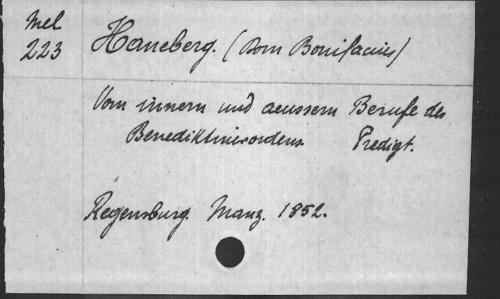 Mel
223
Haneberg. (Dom Bonifacius)
Vom innern und aeussern Berufe des
Benediktinerordens Predigt.
Regensburg. Manz. 1852.